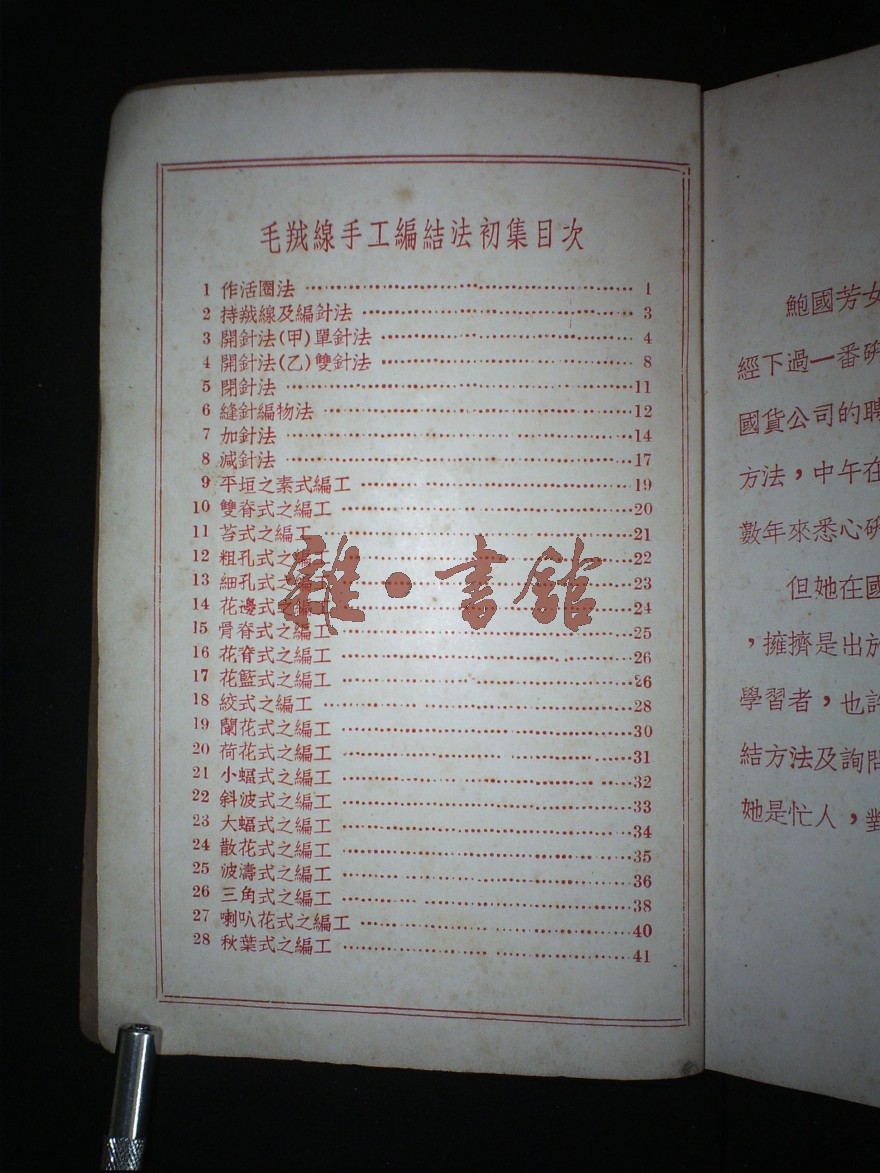 毛羢線手工編結法初集目次
1 作活圈法 1
2 持羢線及編針法 3
3 開針法(甲)單針法 4
4 開針法(乙)雙針法 8
5 閉針法 11
6 縫針編物法 12
7 加針法 14
8 減針法 17
9 平坦之素式編工 19
10 雙脊式之編工 20
11 苔式之編工 21
12 粗孔式之編工 22
13 細孔式之編工 23
14 花邊式之編工 24
15 骨脊式之編工 25
16 花脊式之編工 26
17 花籃式之編工 26
18 絞式之編工 28
19 蘭花式之編工 30
20 荷花式之編工 31
21 小蝠式之編工 32
22 斜波式之編工 33
23 大蝠式之編工 34
24 散花式之編工 35
25 波濤式之編工 36
26 三角式之編工 38
27 喇叭花式之編工 40
28 秋葉式之編工 41
雜·書館
鮑國芳女
經下過一番研
國貨公司的聘
方法，中午在
數年來悉心研
但她在國
，擁擠是出於
學習者，也許
結方法及詢問
她是忙人，對